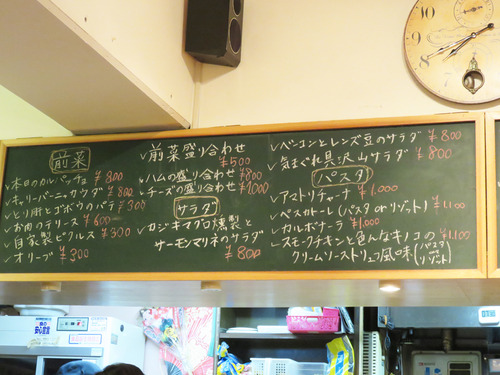 前菜
✓本日のカルパッチョ ¥800
✓キャリーバーニャカウダ ¥800
✓とり肝とゴボウのパテ ¥300
✓お肉のテリーヌ ¥600
✓自家製ピクルス ¥300
✓オリーブ ¥300
✓前菜盛り合わせ
¥500
✓ハムの盛り合わせ ¥800
✓チーズの盛り合わせ ¥1000
サラダ
✓カジキマグロ燻製と
サーモンマリネのサラダ
¥800
✓ベーコンとレンズ豆のサラダ ¥800
✓気まぐれ具沢山サラダ ¥800
パスタ
✓アマトリチャーナ ¥1,000
✓ペスカトーレ(パスタ or リゾット) ¥1100
✓カルボナーラ ¥1,000
✓スモークチキンと色んなキノコの ¥1,100
クリームソーストリュフ風味(パスタ or リゾット)
10
9
8
7
6
5